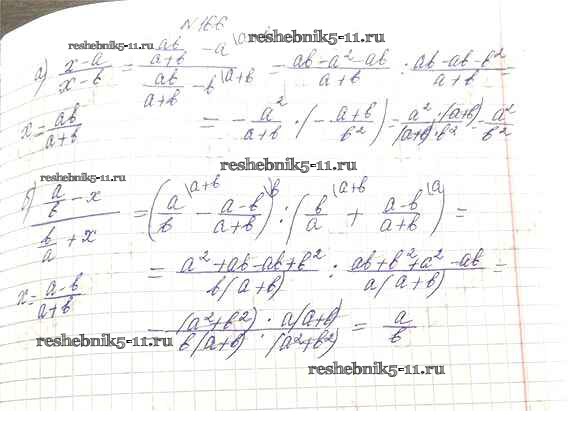 N 166
reshebnik5-11.ru reshebnik5-11.ru
а) (x-a)/(x-b) = (ab/(a+b) - a)/(ab/(a+b) - b\a+b) = (ab-a²-ab)/(a+b) : (ab-ab-b²)/(a+b) =
x = ab/(a+b) = - a²/(a+b) · (- (a+b)/b²) = a²·(a+b)/((a+b)·b²) = a²/b²
reshebnik5-11.ru
reshebnik5-11.ru
б) (a/b - x)/(b/a + x) = (a/b\a+b - (a-b)/(a+b)\b) : (b/a\a+b + (a-b)/(a+b)\a) =
x = (a-b)/(a+b) = (a²+ab-ab+b²)/(b(a+b)) : (ab+b²+a²-ab)/(a(a+b)) =
= (a²+b²)·a(a+b)/(b(a+b)·(a²+b²)) = a/b
reshebnik5-11.ru
reshebnik5-11.ru